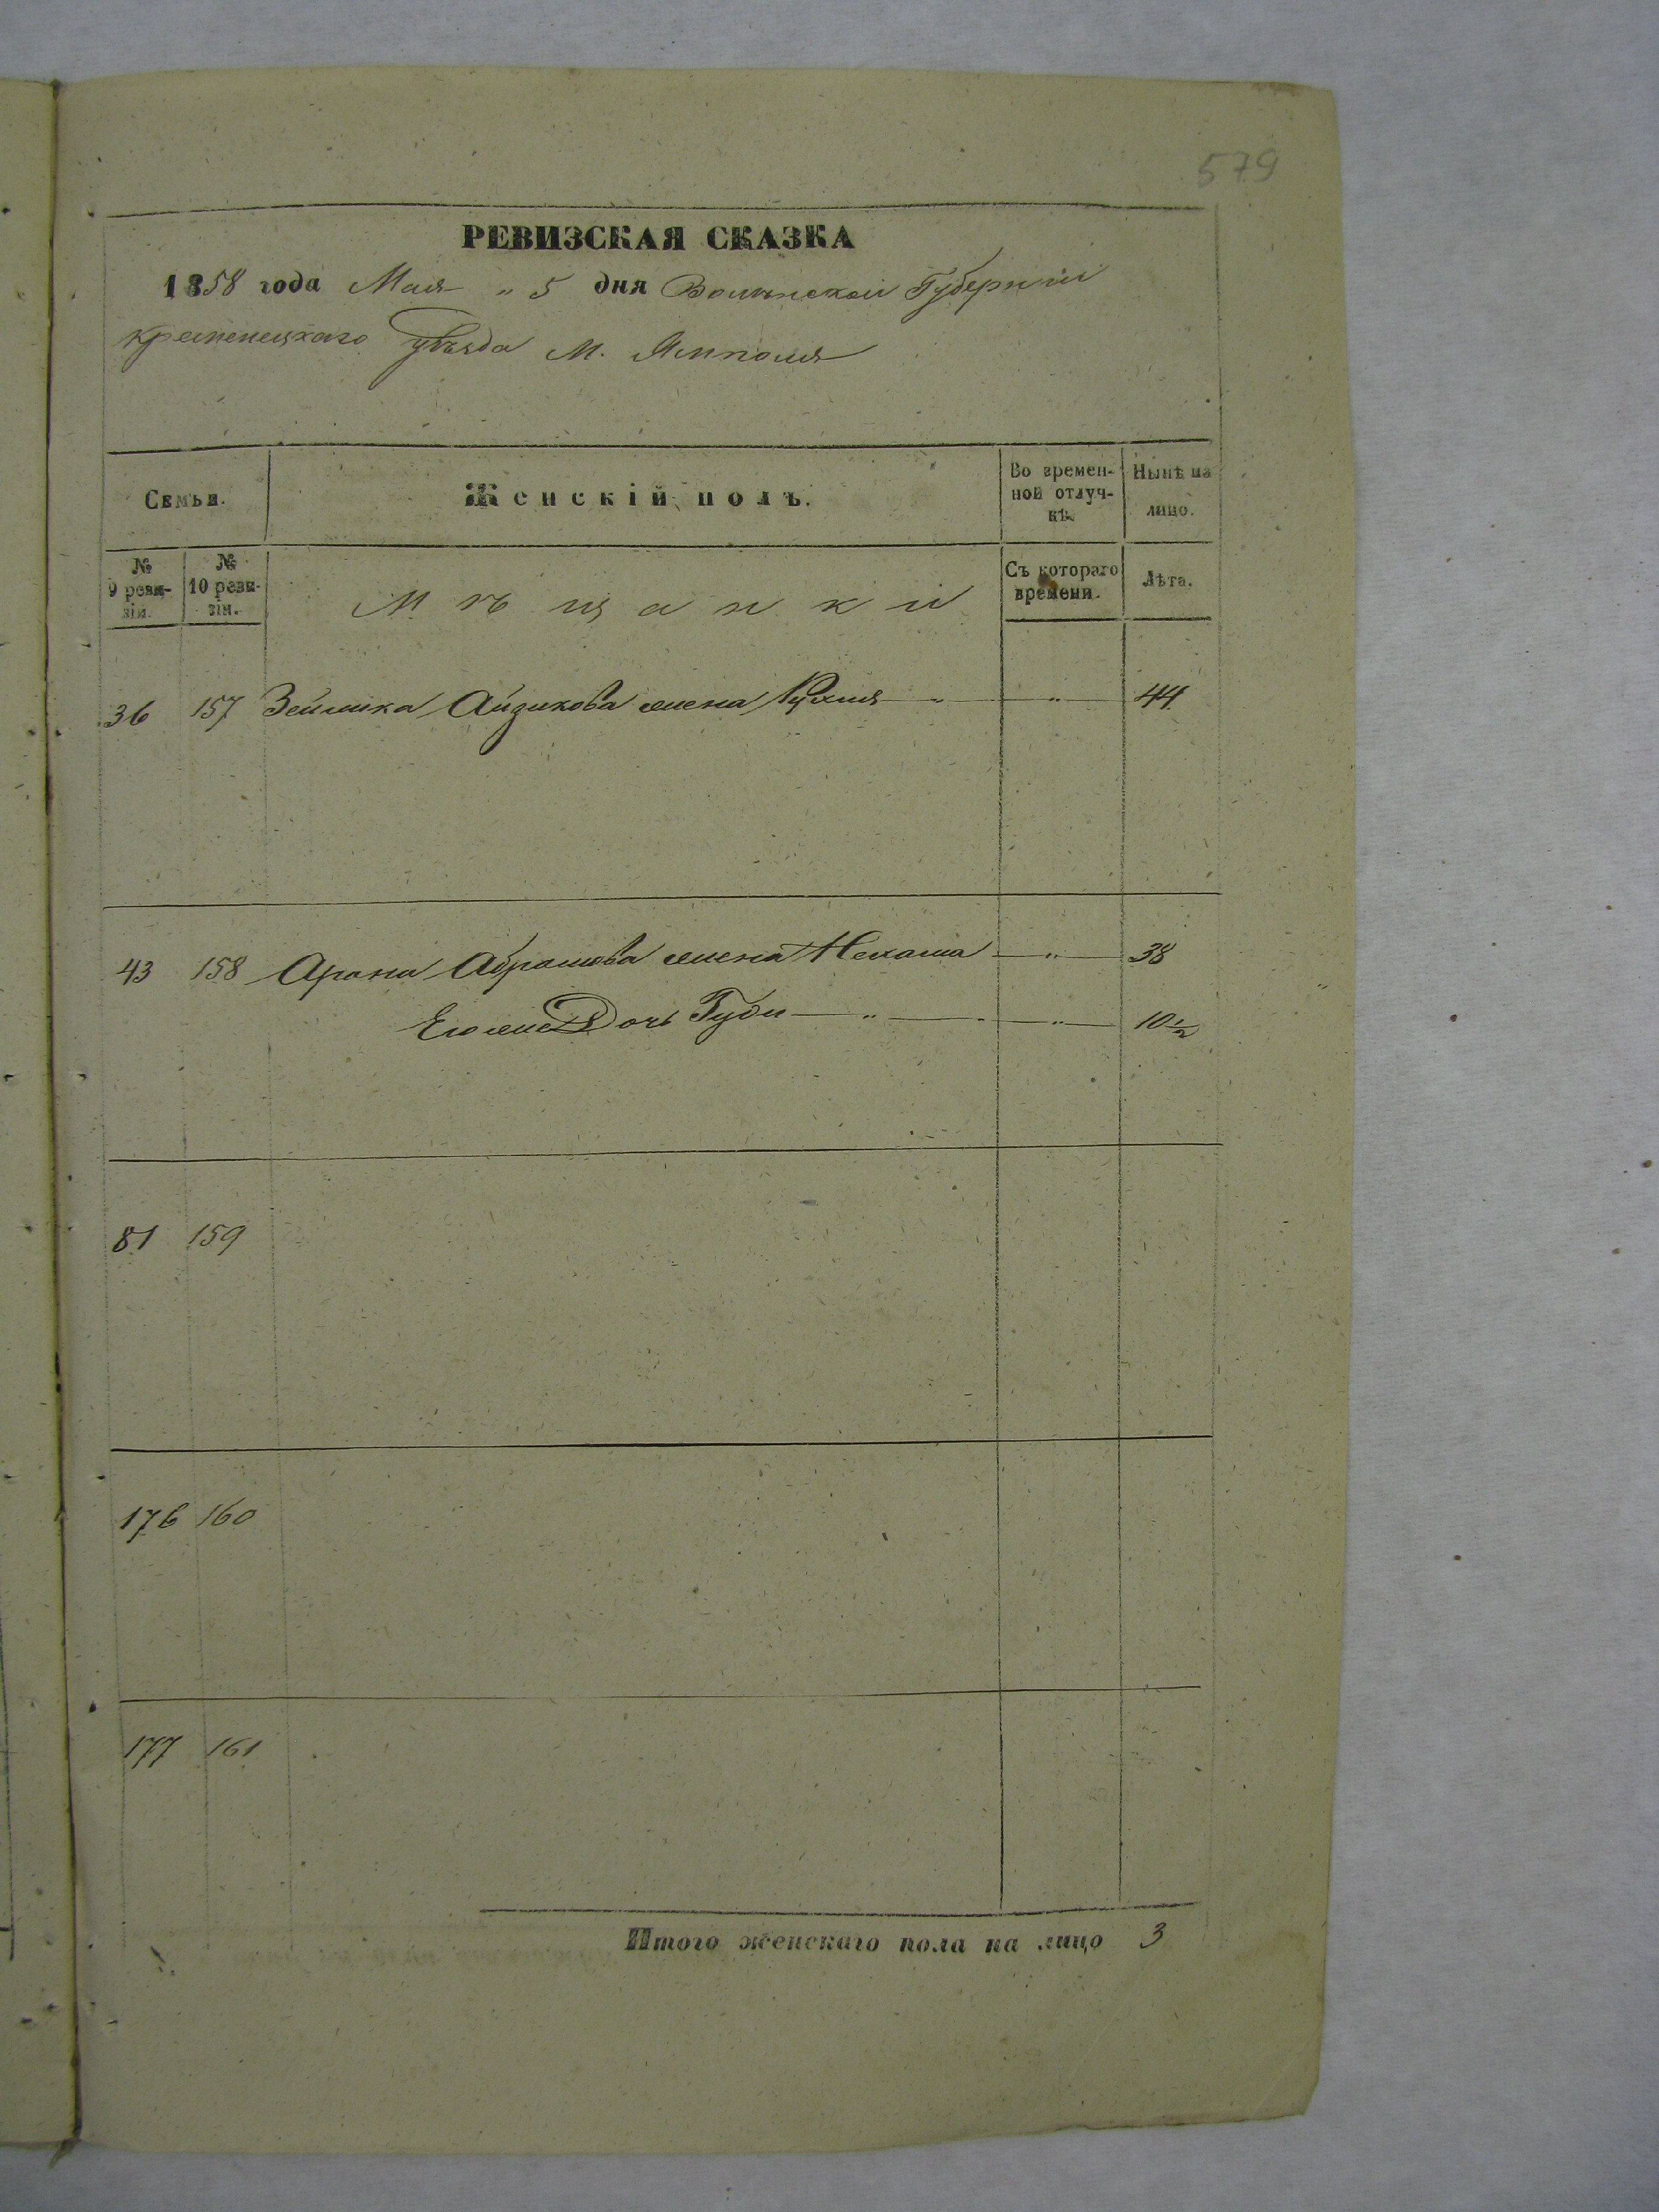 579
РЕВИЗСКАЯ СКАЗКА
1858 года Мая „ 5 дня Волынской Губерніи
Кременецкаго уѣзда М. Ямполя
Семьи.
Женскій полъ.
Во времен-
ной отлуч-
кѣ.
Нынѣ на
лицо.
№
9 реви-
зіи.
№
10 реви-
зіи.
Мѣщанки
Съ котораго
времени.
Лѣта.
36 157 Зейлика Айзикова жена Рухля „ „ 44
43 158 Арона Абрамова жена Нехама „ 38
Его жне Дочь Гуди „ „ 10½
81 159
176 160
177 161
Итого женскаго пола на лицо 3